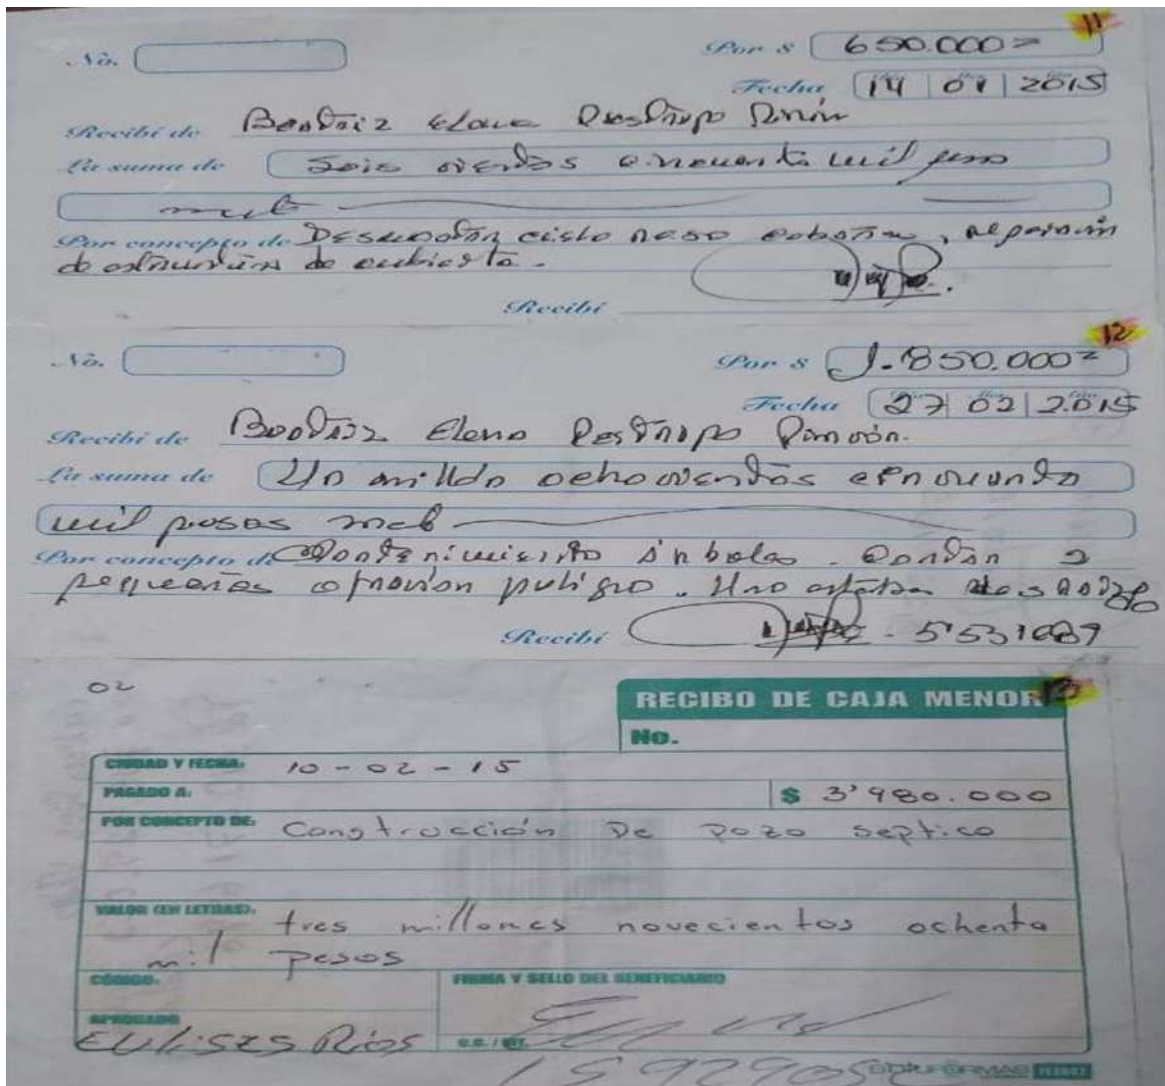 11
No. Por $ 650.000=
Fecha 14 01 2015
Recibí de Beatriz Elena Restrepo
La suma de Seis cientos cincuenta mil peso
mcte
Por concepto de cielo raso, reparación
de estructura de cubierta.
Recibí
12
No. Por $ 1.850.000=
Fecha 27 02 2015
Recibí de Beatriz Elena Restrepo
La suma de Un millón ochocientos cincuenta
mil pesos mcte
Por concepto de Mantenimiento árboles. 2
pequeños peligro. Uno estaba
Recibí
02
RECIBO DE CAJA MENOR
No.
CIUDAD Y FECHA: 10-02-15
PAGADO A: $ 3'980.000
POR CONCEPTO DE: Construcción De pozo septico
VALOR (EN LETRAS): tres millones novecientos ochenta
mil pesos
CÓDIGO. FIRMA Y SELLO DEL BENEFICIARIO
APROBADO
EULISES Ríos C.C. / NIT.